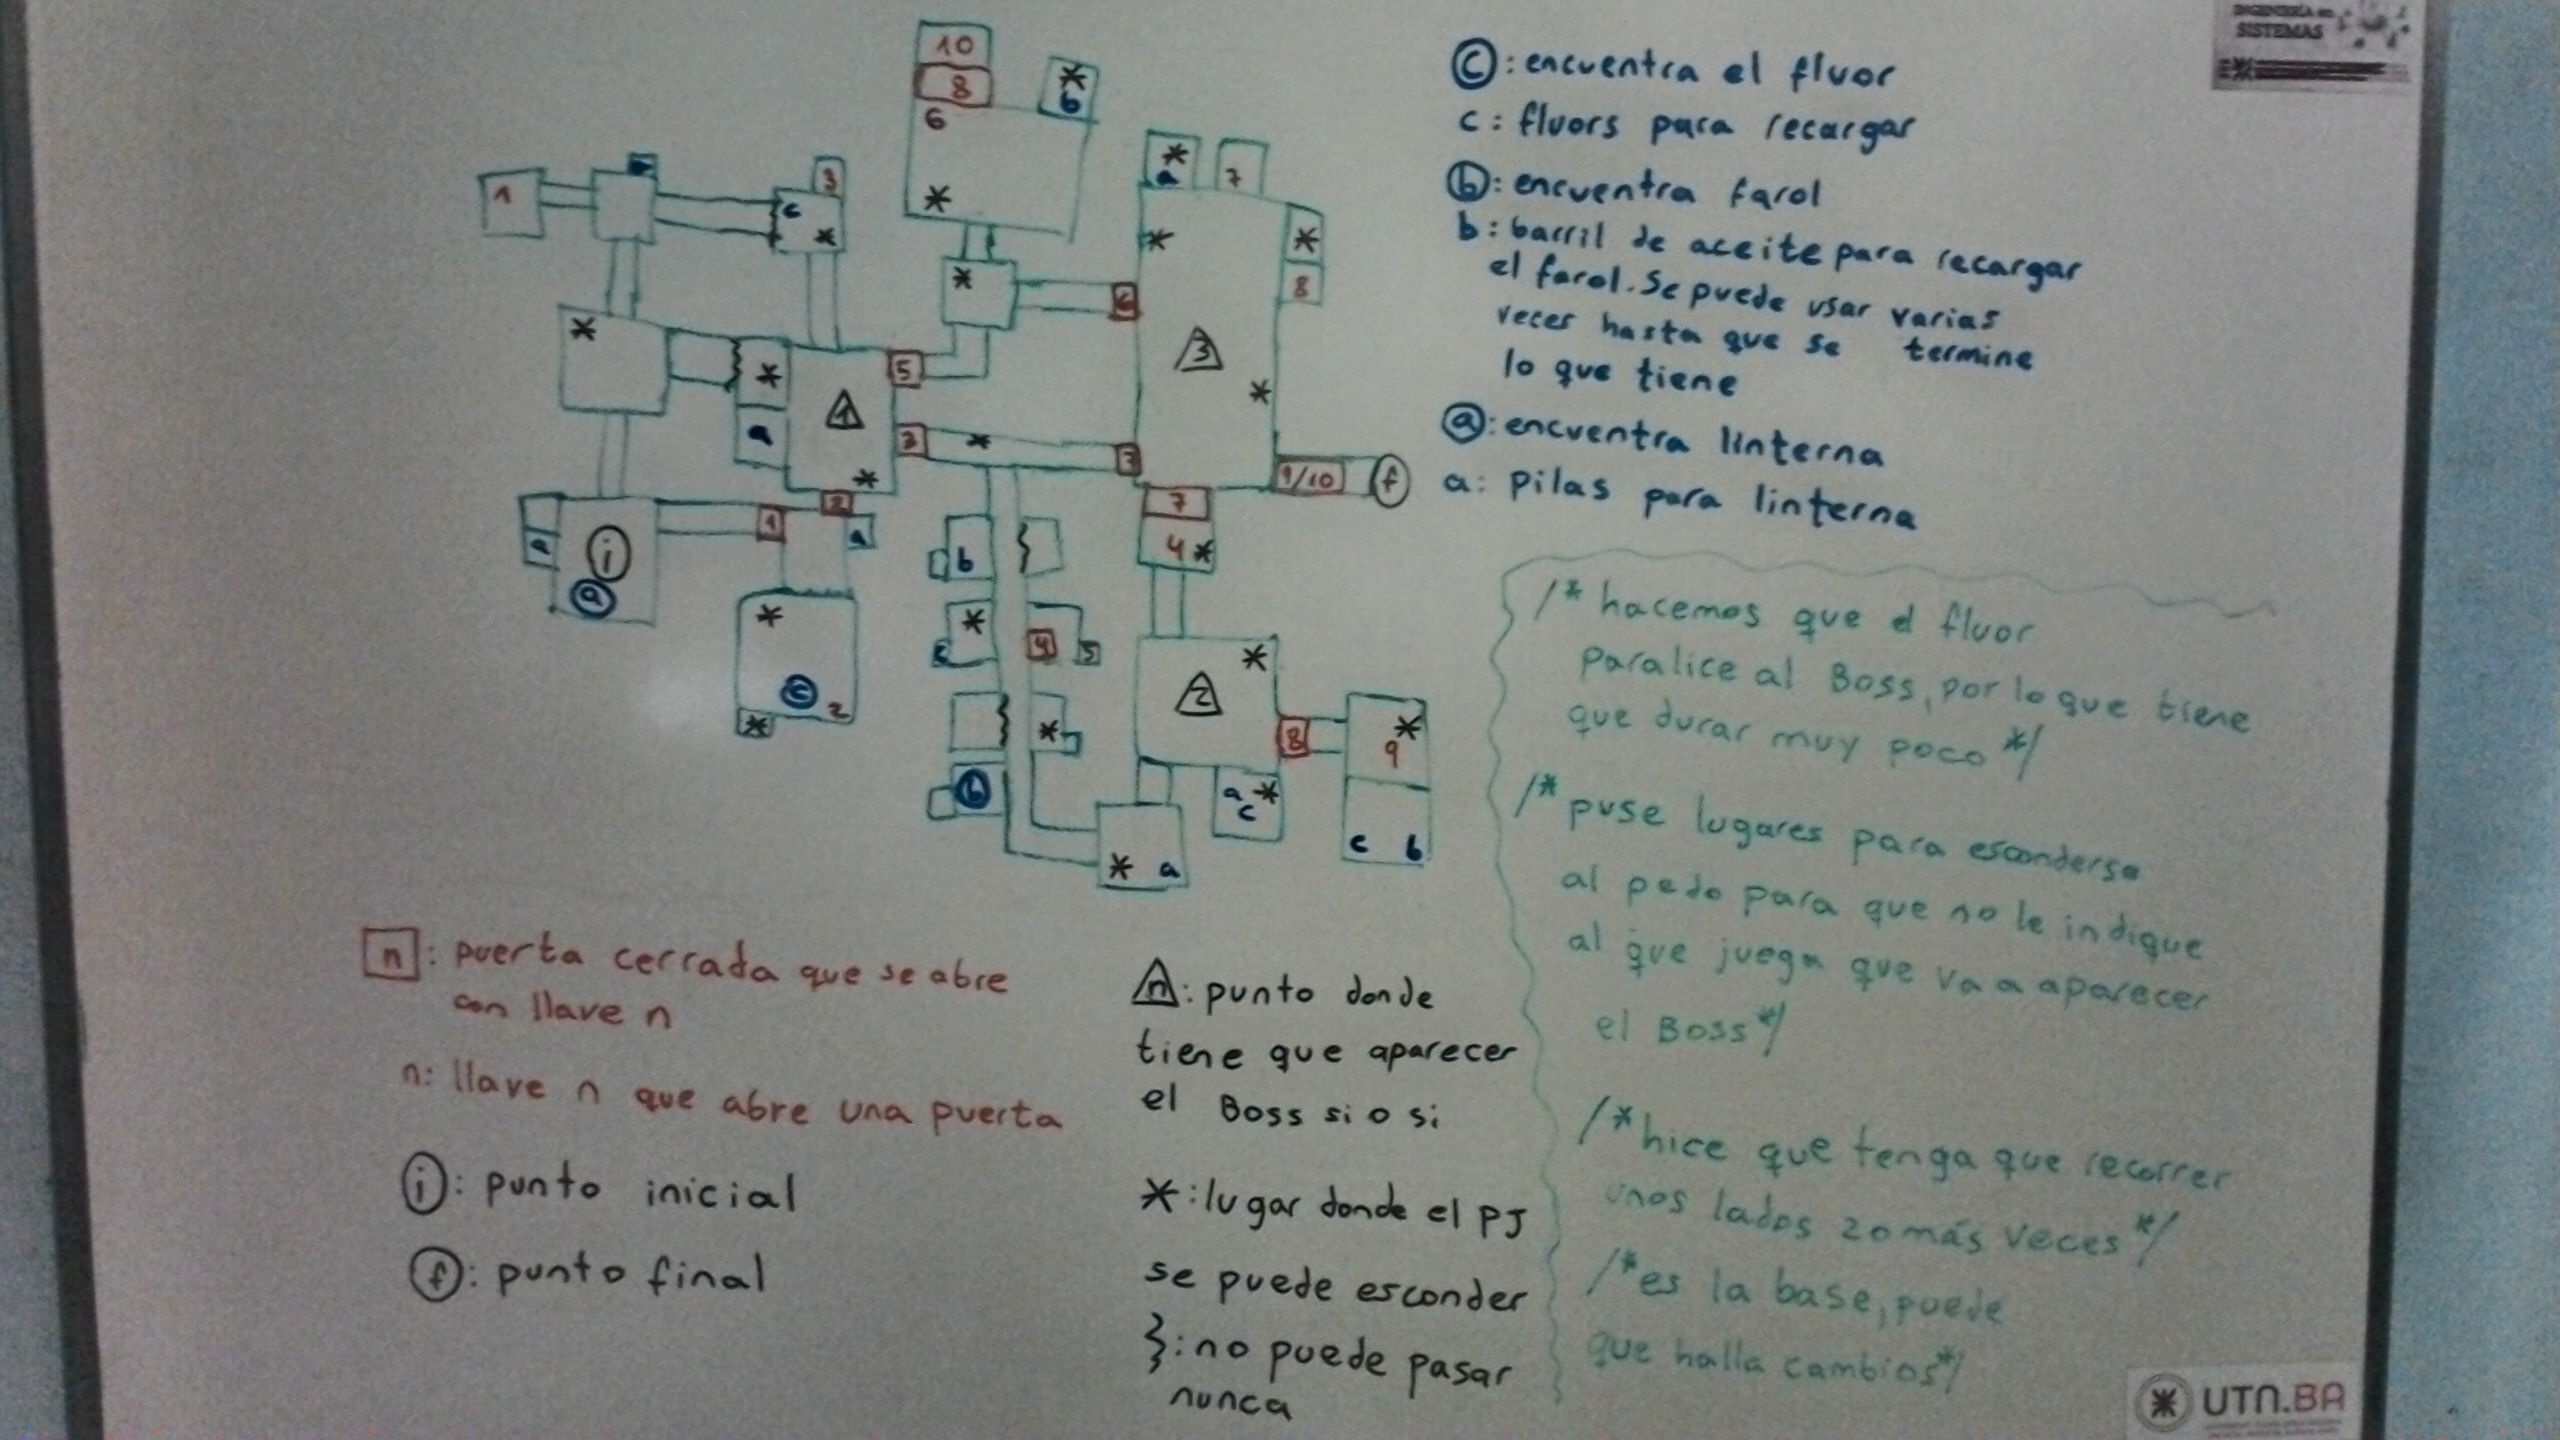 INGENIERÍA en
SISTEMAS
10
8
6
*
*
b
1
c
*
3
*
a
7
*
*
8
*
6
*
*
a
1
*
5
3
*
7
3
*
9/10
f
7
4 *
2
1
a
a
i
a
*
c
2
*
b
*
c
4
5
*
b
*
2
8
*
9
a *
c
c b
* a
c: encuentra el fluor
c: fluors para recargar
b: encuentra farol
b: barril de aceite para recargar
el farol. Se puede usar varias
veces hasta que se termine
lo que tiene
a: encuentra linterna
a: pilas para linterna
/* hacemos que el fluor
paralice al Boss, por lo que tiene
que durar muy poco */
/* puse lugares para esconderse
al pedo para que no le indique
al que juega que va a aparecer
el Boss */
/* hice que tenga que recorrer
unos lados 2 o más veces */
/* es la base, puede
que halla cambios */
n: puerta cerrada que se abre
con llave n
n: llave n que abre una puerta
i: punto inicial
f: punto final
n: punto donde
tiene que aparecer
el Boss si o si
*: lugar donde el PJ
se puede esconder
}: no puede pasar
nunca
UTN.BA